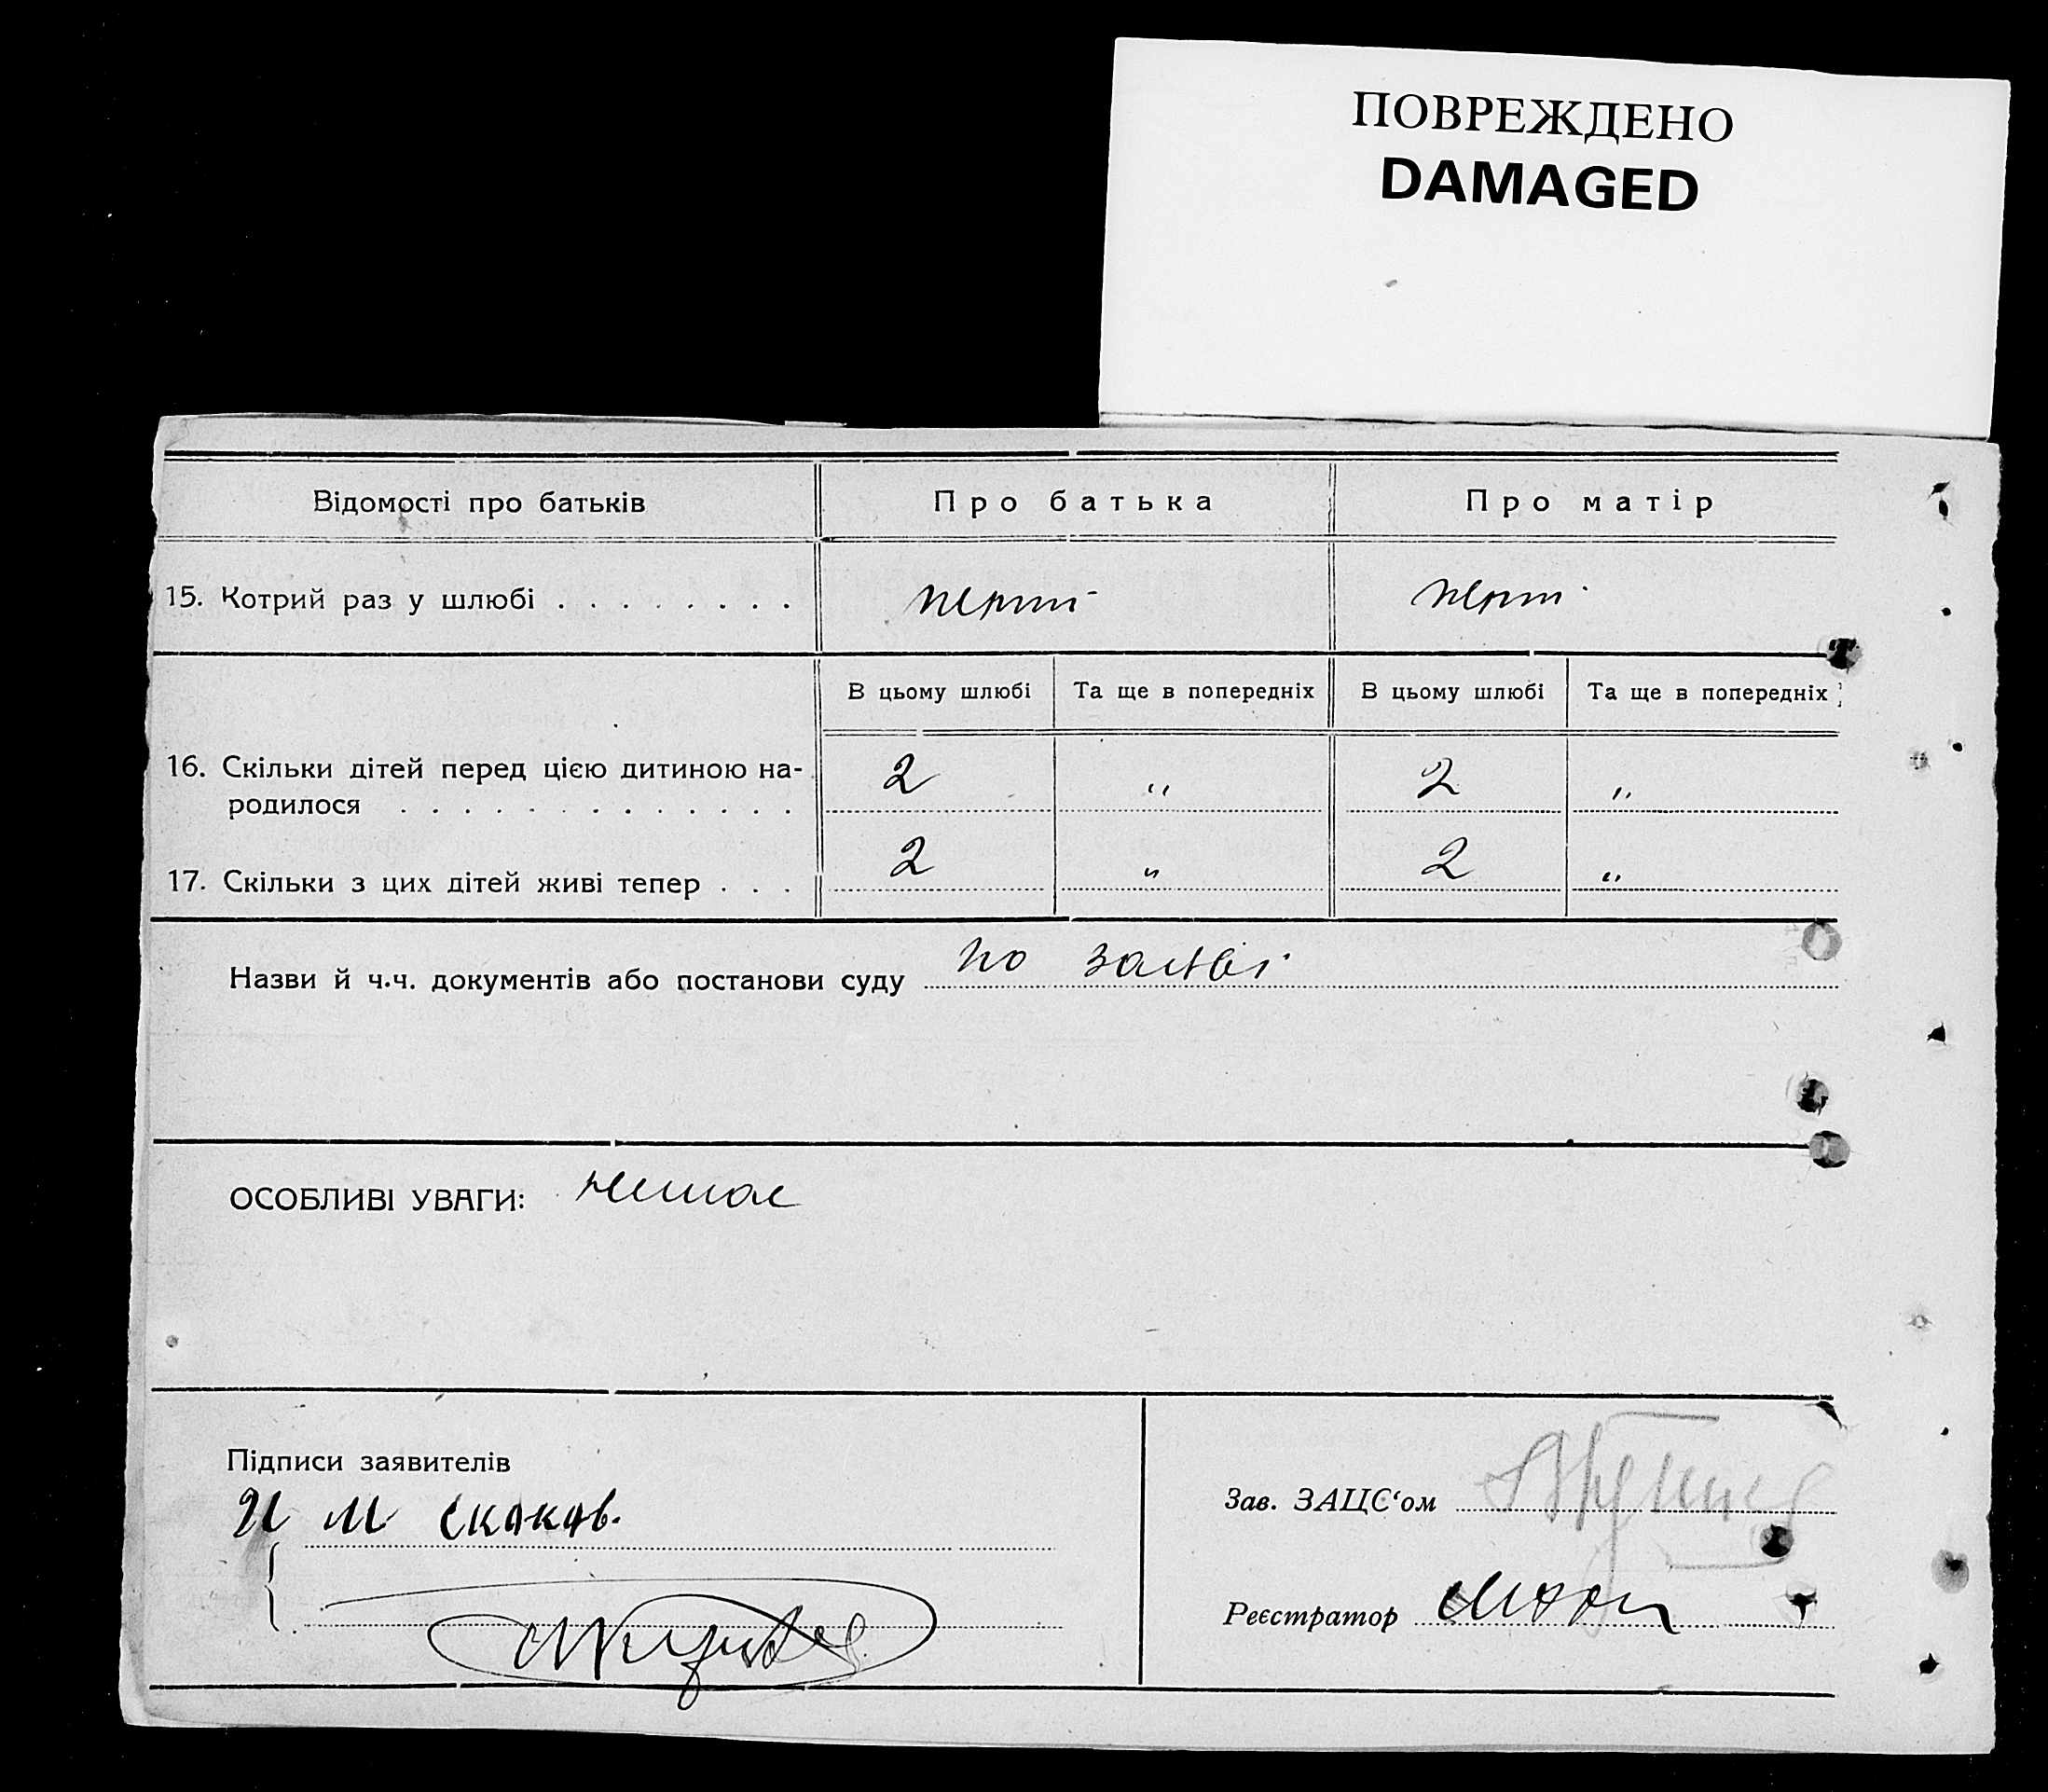 ПОВРЕЖДЕНО
DAMAGED
Відомості про батьків
Про батька
Про матір
15. Котрий раз у шлюбі . . . . . . . .
перш
перш
В цьому шлюбі
Та ще в попередніх
В цьому шлюбі
Та ще в попередніх
16. Скільки дітей перед цією дитиною на-
родилося . . . . . . . . . . . . .
2 „ 2 „
17. Скільки з цих дітей живі тепер . . .
2 „ 2 „
Назви й ч.ч. документів або постанови суду по заяві
ОСОБЛИВІ УВАГИ: немає
Підписи заявителів
И М Скаков.
Зав. ЗАЦС‘ом
Реєстратор